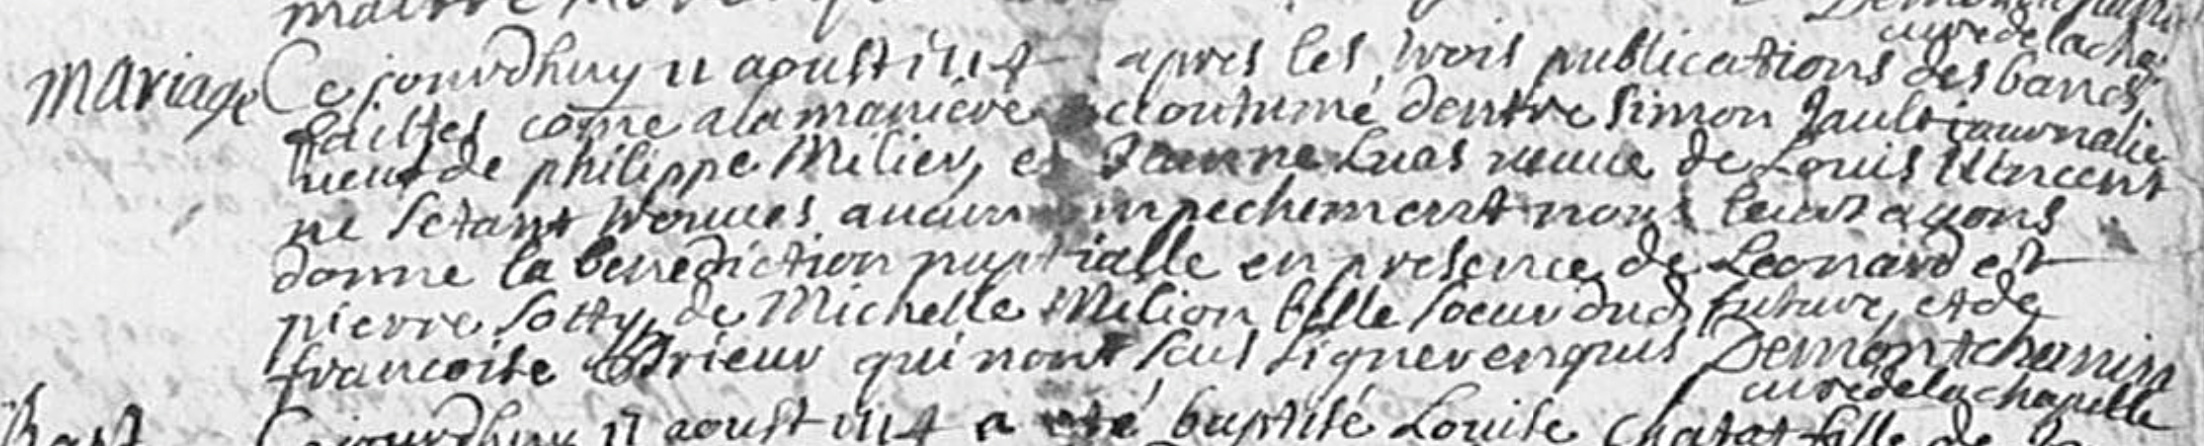 curé de la cha
Mariage Ce jourdhuy 11 aoust 1714 apres les trois publications des bancs
faittes come a la maniere acloutumé dentre Simon Gault journalie
veuf de philippe Milien, et Jeanne Luas veuue de Louis Vincent
ne setant trouuees aucun inpechement nous leurs ayons
donne la benediction nuptialle en presence de Leonard et
pierre Sotty, de Michelle Milion belle soeur dud future, et de
francoise Prieur qui nont sceus signer enquis Demontchanin
curé de la chapelle
Bapt Ce jourdhuy 17 aoust 1714 a eté baptisé Louise Chatat fille de